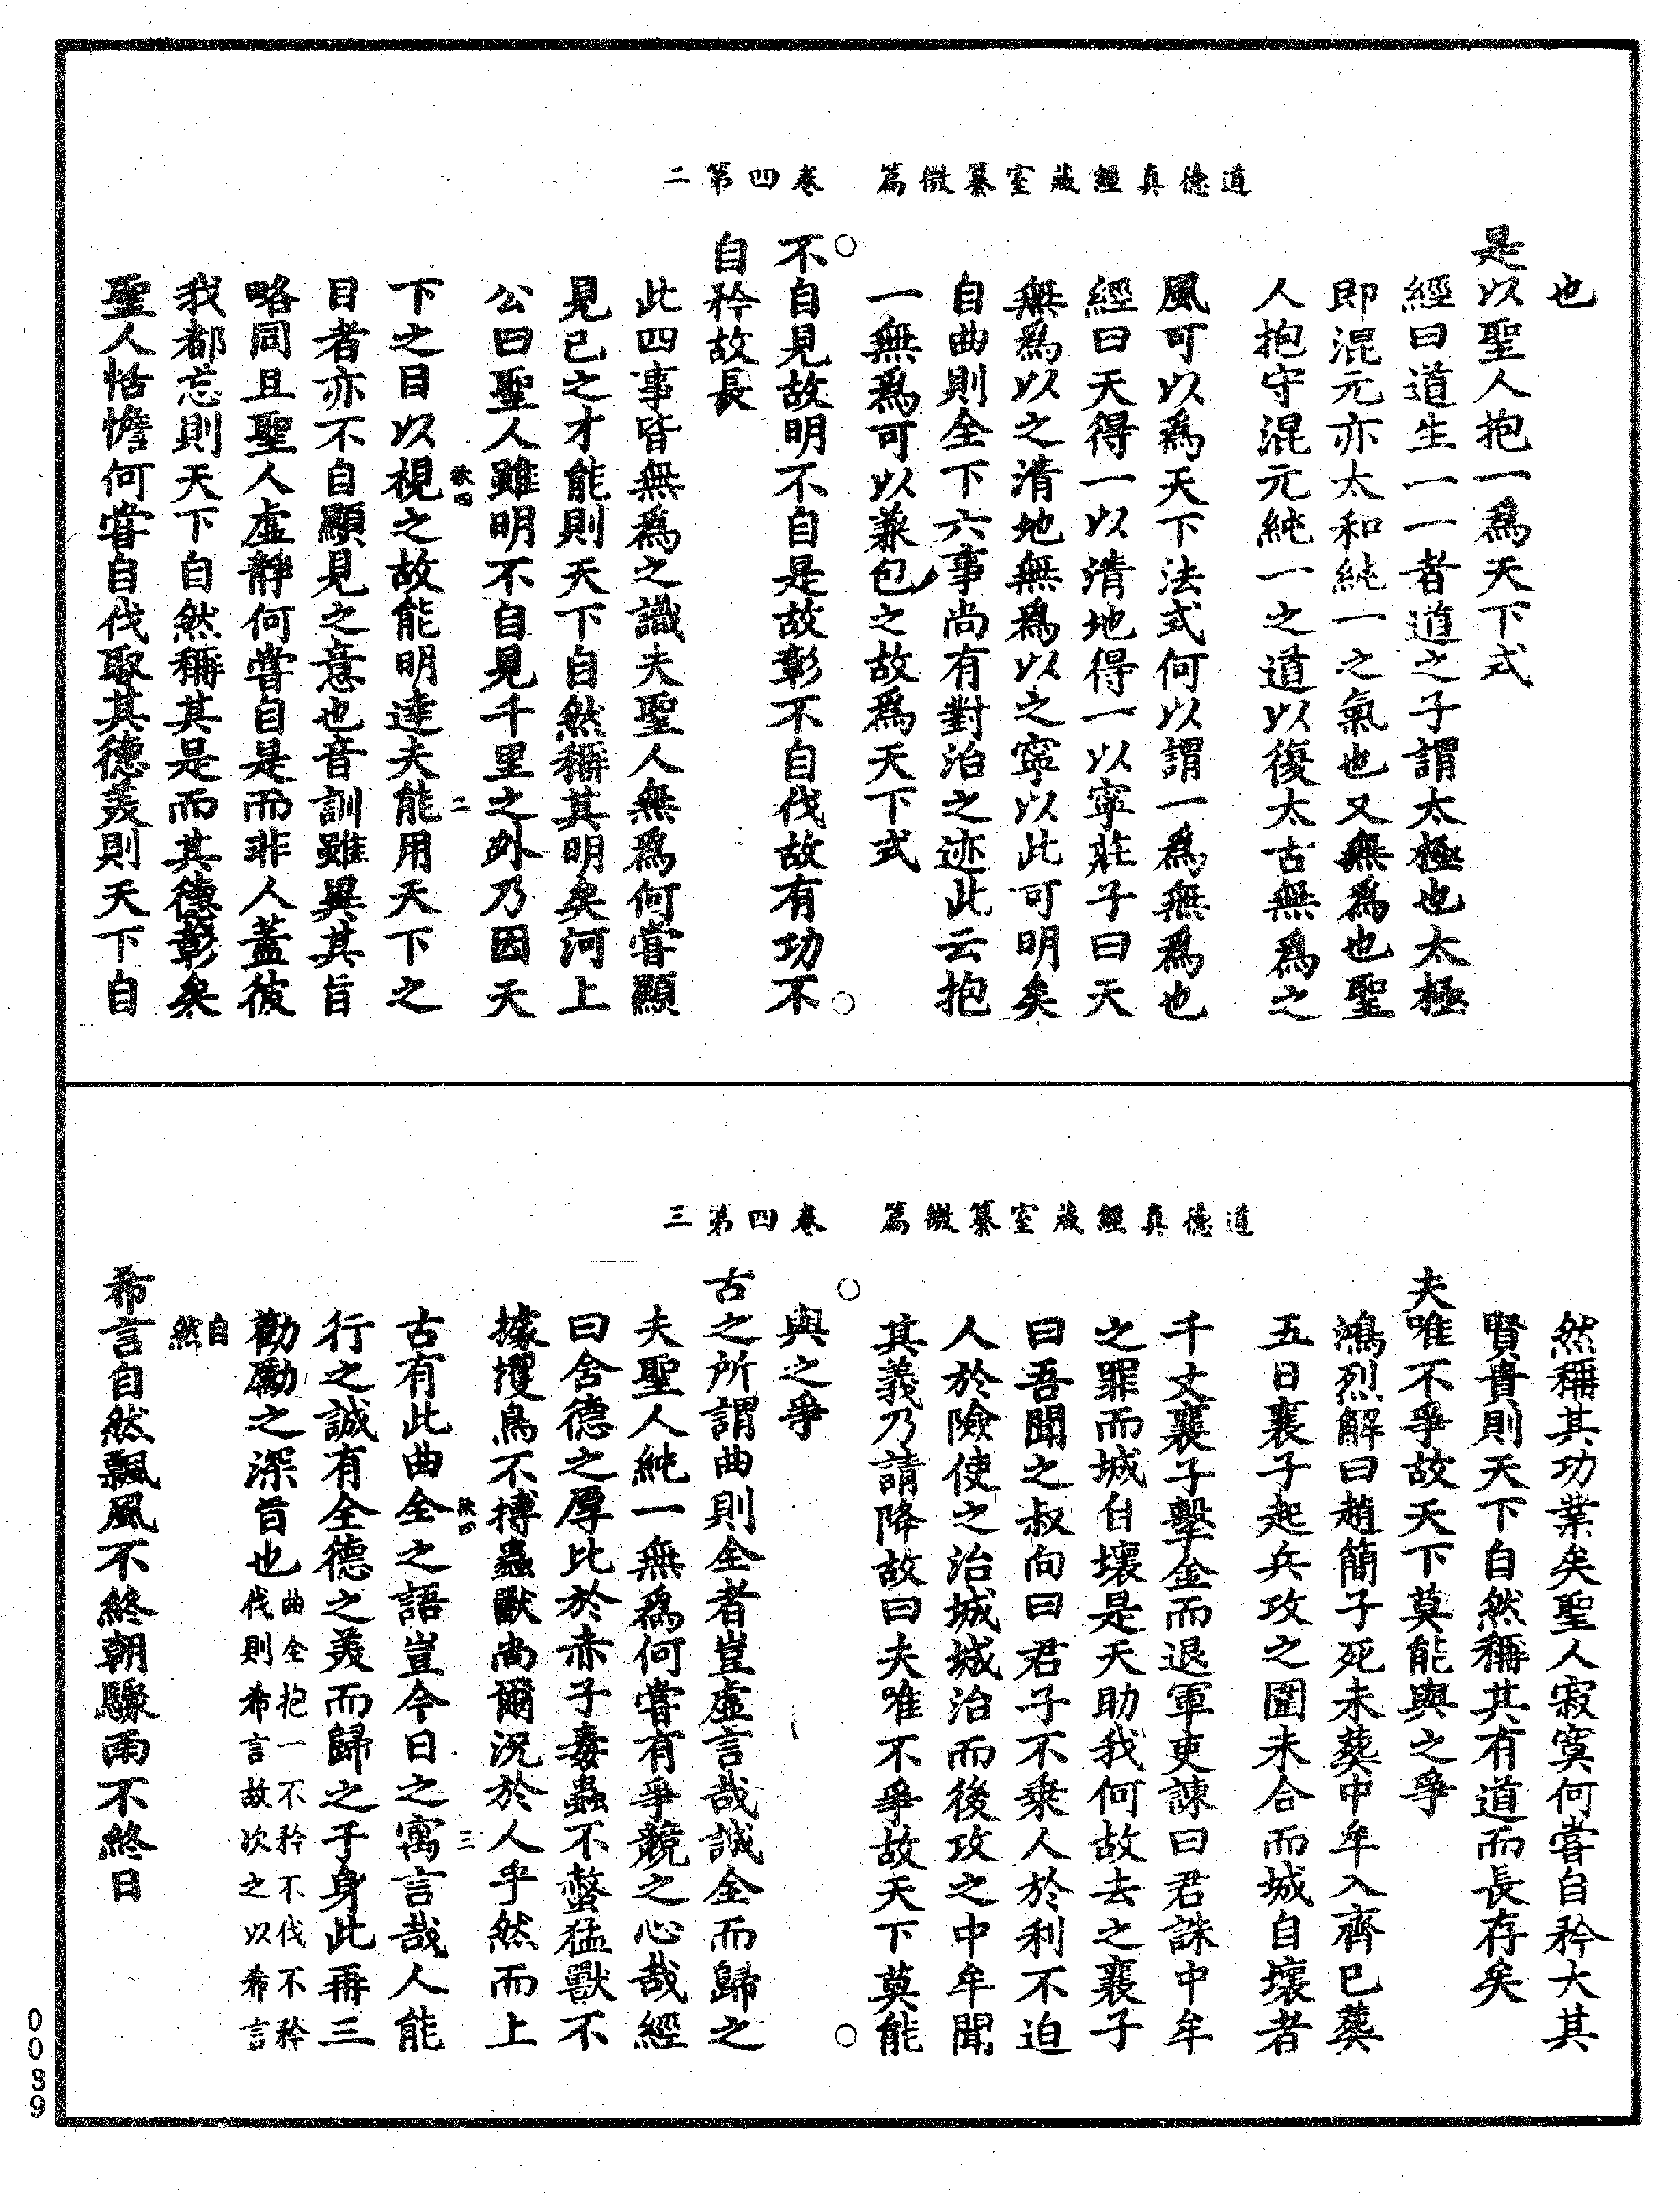 道德真經藏室纂微篇　卷四第二
也
是以聖人抱一為天下式
經曰道生一一者道之子謂太極也太極
即混元亦太和純一之氣也又無為也聖
人抱守混元純一之道以復太古無為之
風可以為天下法式何以謂一為無為也
經曰天得一以清地得一以寧莊子曰天
無為以之清地無為以之寧以此可明矣
自曲則全下六事尚有對治之迹此云抱
一無為可以兼包之故為天下式
不自見故明不自是故彰不自伐故有功不
自矜故長
此四事皆無為之識夫聖人無為何嘗顯
見己之才能則天下自然稱其明矣河上
公曰聖人雖明不自見千里之外乃因天
欲四　二
下之目以視之故能明達夫能用天下之
目者亦不自顯見之意也音訓雖異其旨
略同且聖人虛靜何嘗自是而非人蓋彼
我都忘則天下自然稱其是而其德彰矣
聖人恬憺何嘗自伐取其德美則天下自
道德真經藏室纂微篇　卷四第三
然稱其功業矣聖人寂寞何嘗自矜大其
賢貴則天下自然稱其有道而長存矣
夫唯不爭故天下莫能與之爭
鴻烈解曰趙簡子死未葬中牟入齊已葬
五日襄子起兵攻之圍未合而城自壞者
千丈襄子擊金而退軍吏諫曰君誅中牟
之罪而城自壞是天助我何故去之襄子
曰吾聞之叔向曰君子不乘人於利不迫
人於險使之治城城治而後攻之中牟聞
其義乃請降故曰夫唯不爭故天下莫能
與之爭
古之所謂曲則全者豈虛言哉誠全而歸之
夫聖人純一無為何嘗有爭競之心哉經
曰含德之厚比於赤子毒蟲不螫猛獸不
據攫鳥不搏蟲獸尚爾況於人乎然而上
欲四　三
古有此曲全之語豈今日之寓言哉人能
行之誠有全德之美而歸之于身此再三
勸勵之深旨也曲全抱一不矜不伐不矜
伐則希言故次之以希言
自
然
希言自然飄風不終朝驟雨不終日
0039